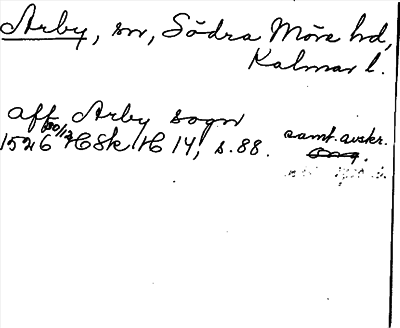 Arby, sn, Södra Möre hd,
Kalmar l.
aff Arby sogn
1526 30/12 HSk H 14, s. 88. samt. avskr.